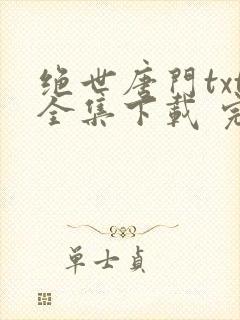 绝世唐門txt
全集下載 完
单士貞